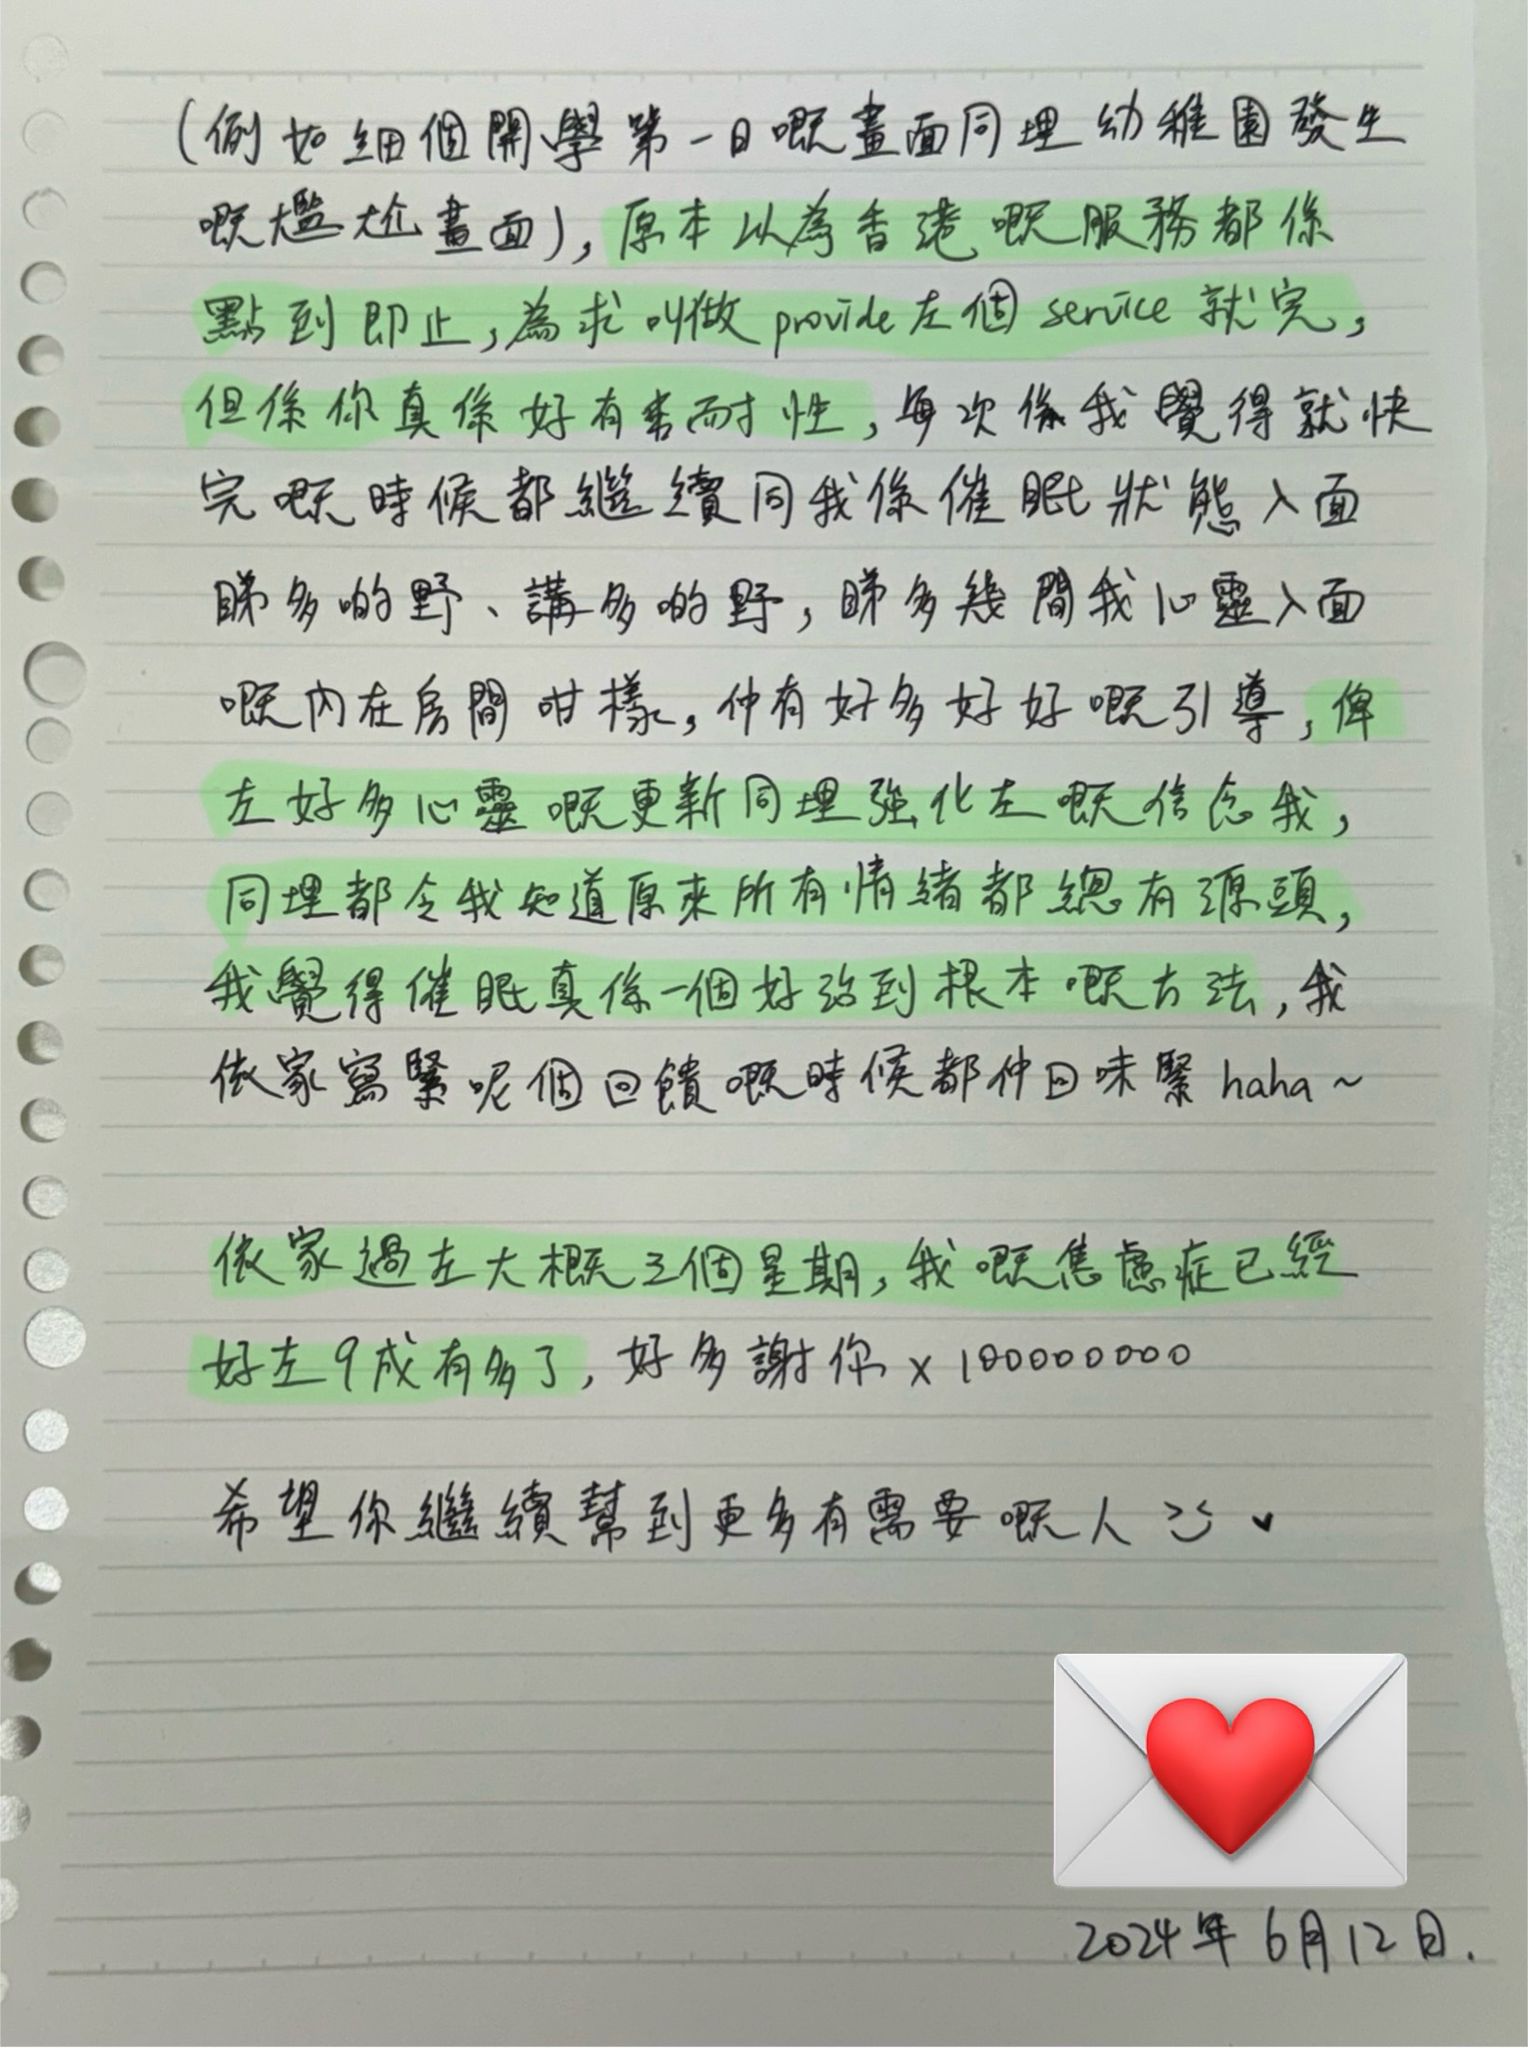 (例如細個開學第一日嘅畫面同埋幼稚園發生
嘅尷尬畫面),原本以為香港嘅服務都係
點到即止,為求叫做provide左個service就完,
但係你真係好有耐性,每次係我覺得就快
完嘅時候都繼續同我係催眠狀態入面
睇多啲野、講多啲野,睇多幾間我心靈入面
嘅內在房間咁樣,仲有好多好好嘅引導,俾
左好多心靈嘅更新同埋強化左嘅信念我,
同埋都令我知道原來所有情緒都總有源頭,
我覺得催眠真係一個好治到根本嘅方法,我
依家寫緊呢個回饋嘅時候都仲回味緊haha~
依家過左大概三個星期,我嘅焦慮症已經
好左9成有多了,好多謝你x100000000
希望你繼續幫到更多有需要嘅人
2024年6月12日.